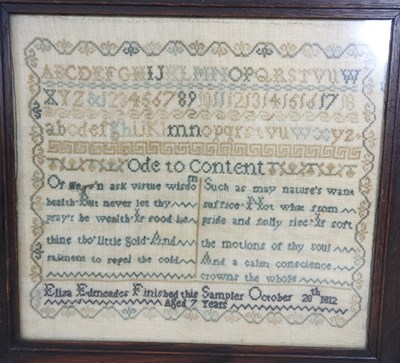 ABCDEFGHIJKLMNOPQRSTVUW
XYZ&1234567891011121314151617 18
abcdefghijklmnopqrstvuwxyz.
Ode to Content
Of ask virtue wisdom
health But never let thy
pray'r be wealth If food be
thine tho' little gold And
raiment to repel the cold
Such as may nature's want
suffice Not what from
pride and folly rise If soft
the motions of thy soul
And a calm conscience
crowns the whole
Eliza Edmeades Finished this Sampler October 20th 1812
Aged 7 Years